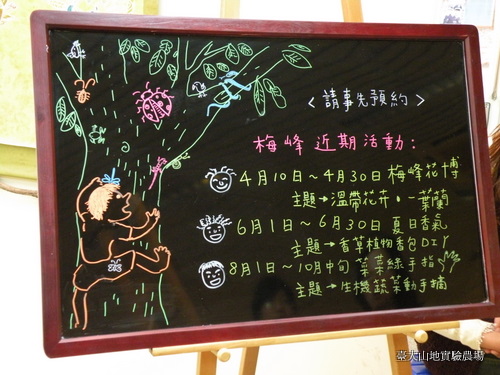 <請事先預約>
梅峰近期活動:
4月10日~4月30日梅峰花博
主題→溫帶花卉·一葉蘭
6月1日~6月30日夏日香氣
主題→香草植物香包DIY
8月1日~10月中旬 菜菜綠手指
主題→生機蔬菜動手摘
臺大山地實驗農場